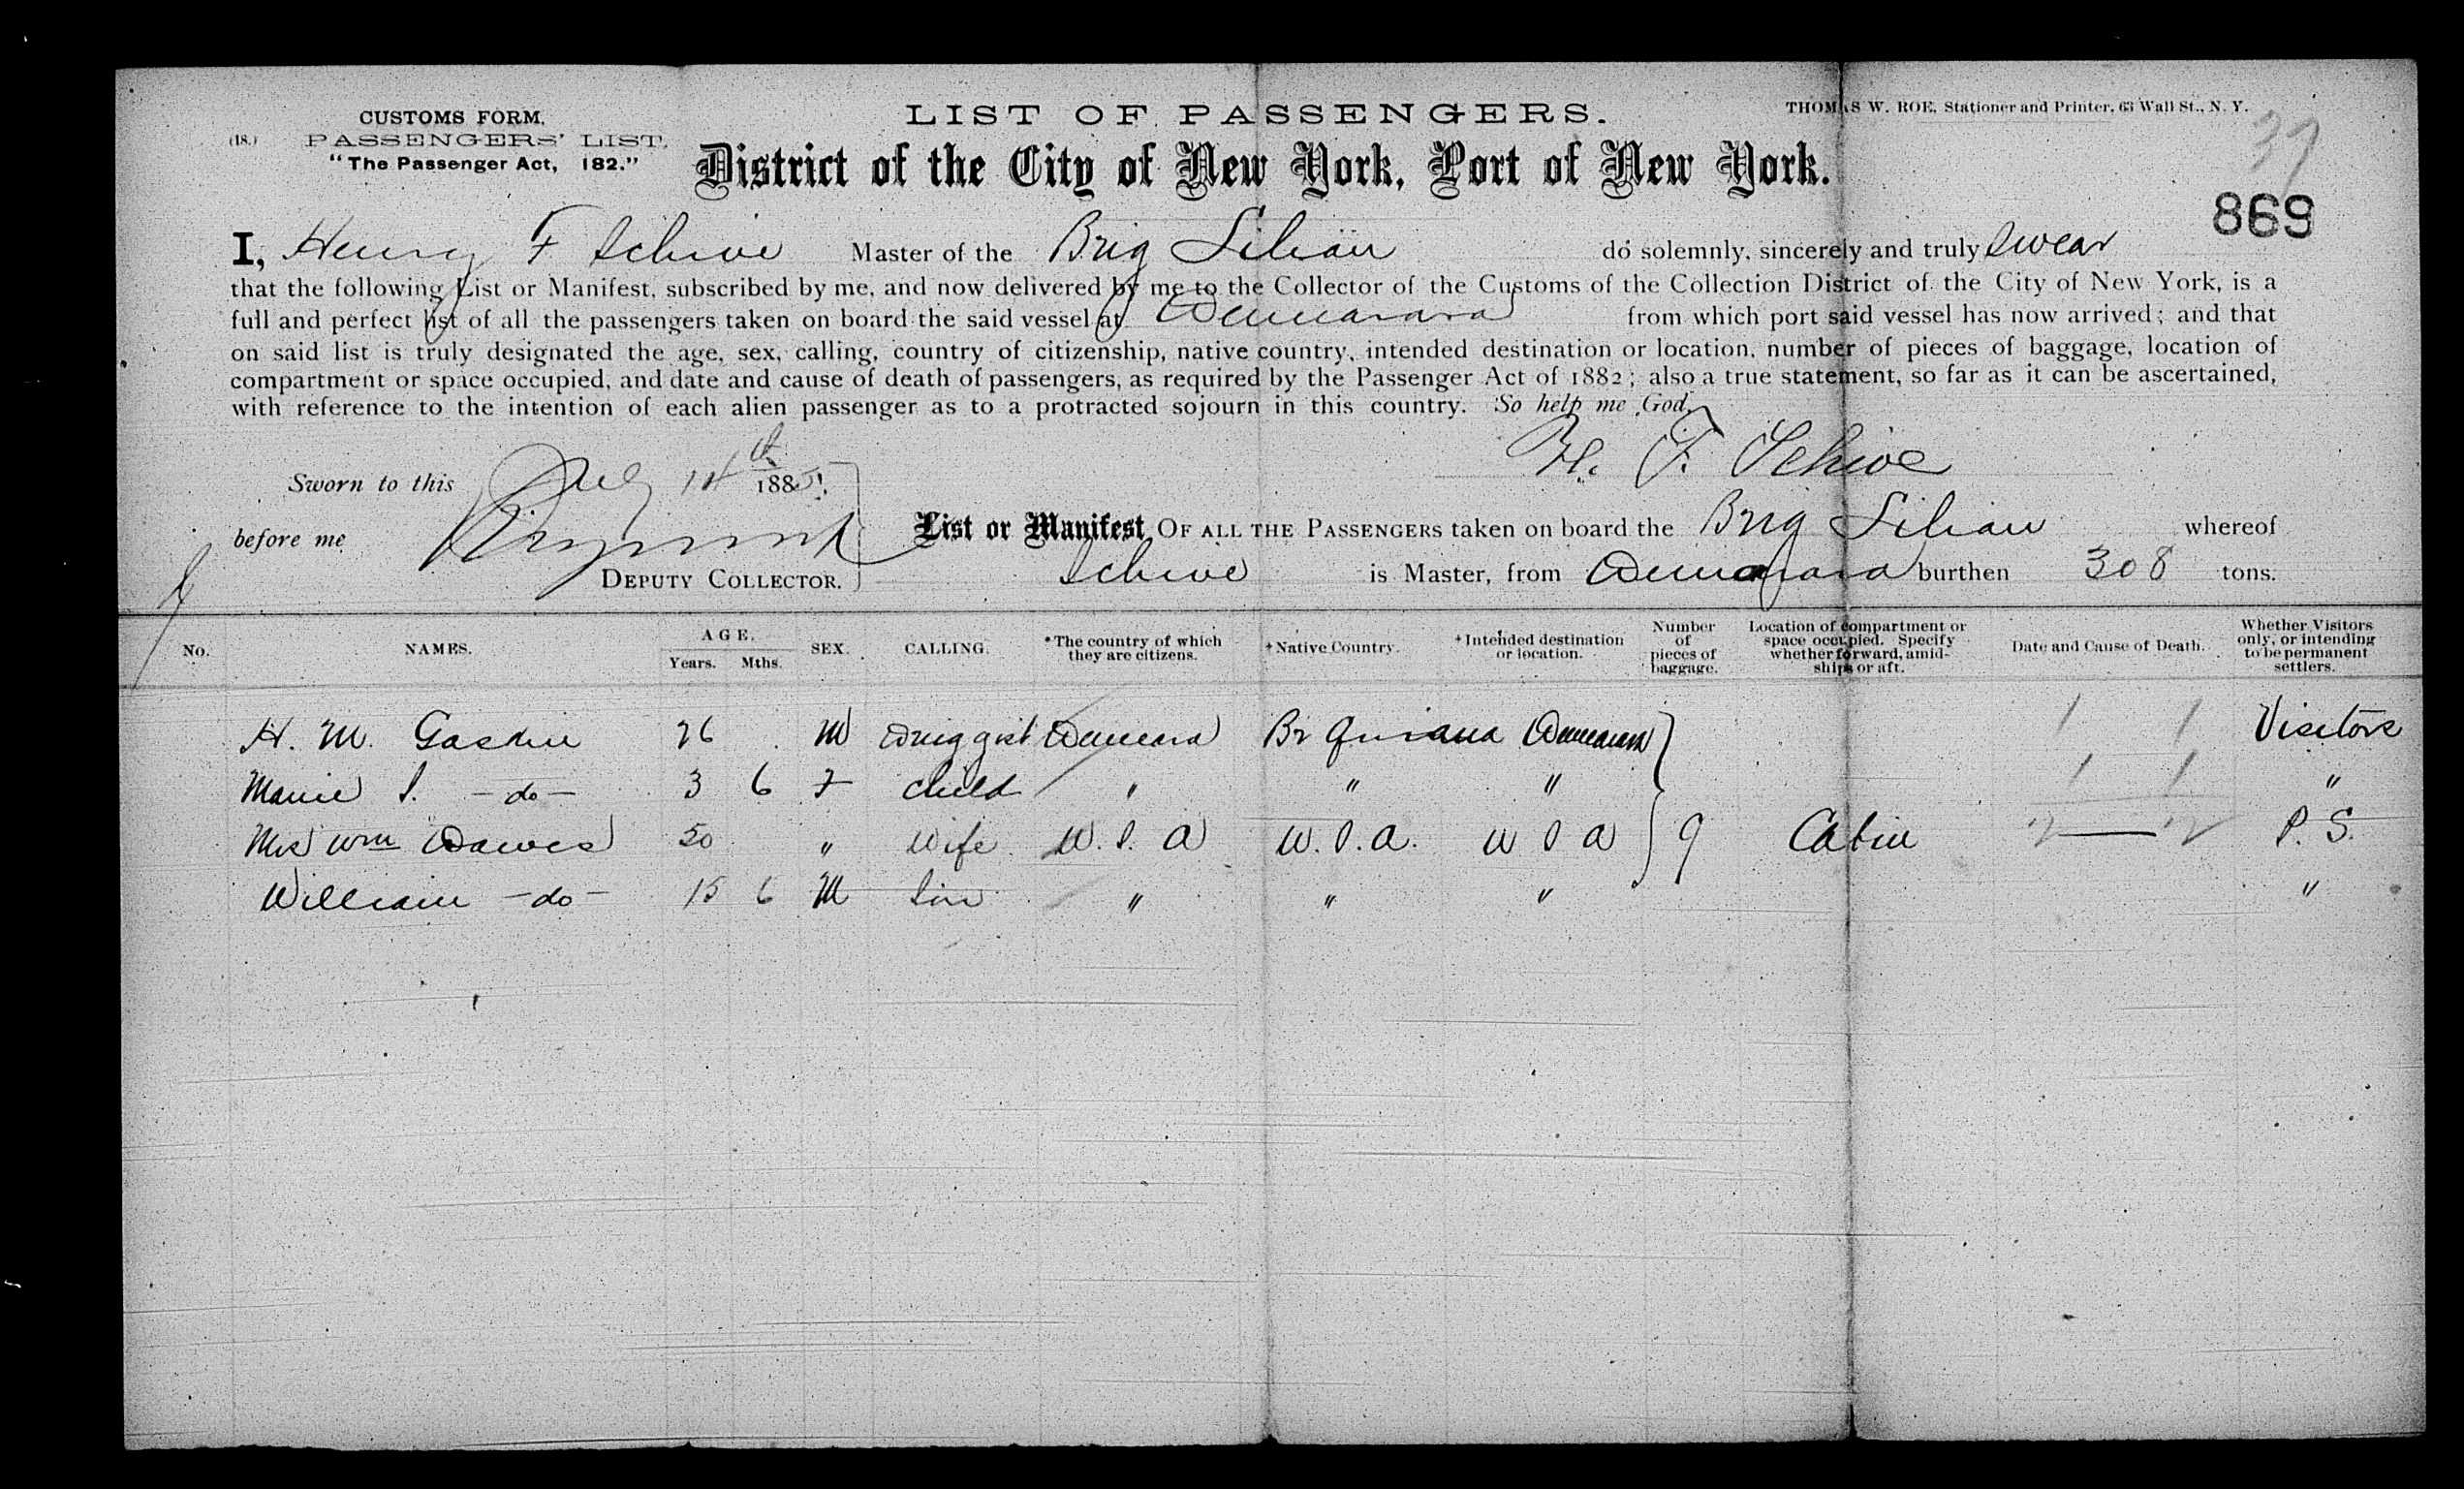 CUSTOMS FORM.
(18.) PASSENGERS' LIST.
"The Passenger Act, 182."
LIST OF PASSENGERS.
THOMAS W. ROE, Stationer and Printer, 63 Wall St., N. Y.
District of the City of New York, Port of New York.
37
869
I, Henry F Schive Master of the Brig Lilian do solemnly, sincerely and truly swear
that the following List or Manifest, subscribed by me, and now delivered by me to the Collector of the Customs of the Collection District of the City of New York, is a
full and perfect list of all the passengers taken on board the said vessel at Demarara from which port said vessel has now arrived; and that
on said list is truly designated the age, sex, calling, country of citizenship, native country, intended destination or location, number of pieces of baggage, location of
compartment or space occupied, and date and cause of death of passengers, as required by the Passenger Act of 1882; also a true statement, so far as it can be ascertained,
with reference to the intention of each alien passenger as to a protracted sojourn in this country. So help me God.
H. F. Schive
Sworn to this July 14th 1885.
before me
DEPUTY COLLECTOR.
List or Manifest OF ALL THE PASSENGERS taken on board the Brig Lilian whereof
Schive is Master, from Demarara burthen 308 tons.
No. NAMES. AGE. Years. Mths. SEX. CALLING. *The country of which they are citizens. +Native Country. +Intended destination or location. Number of pieces of baggage. Location of compartment or space occupied. Specify whether forward, amidships or aft. Date and Cause of Death. Whether Visitors only, or intending to be permanent settlers.
H. M. 26 M Druggist Br Guiana Demarara 1 1 Visitors
3 6 F Child " " " 1 1 "
Mrs Wm Dawes 50 " Wife U. S. A U. S. A. U S A 9 Cabin 2 — 2 P. S.
William -do- 15 6 M Son " " " "